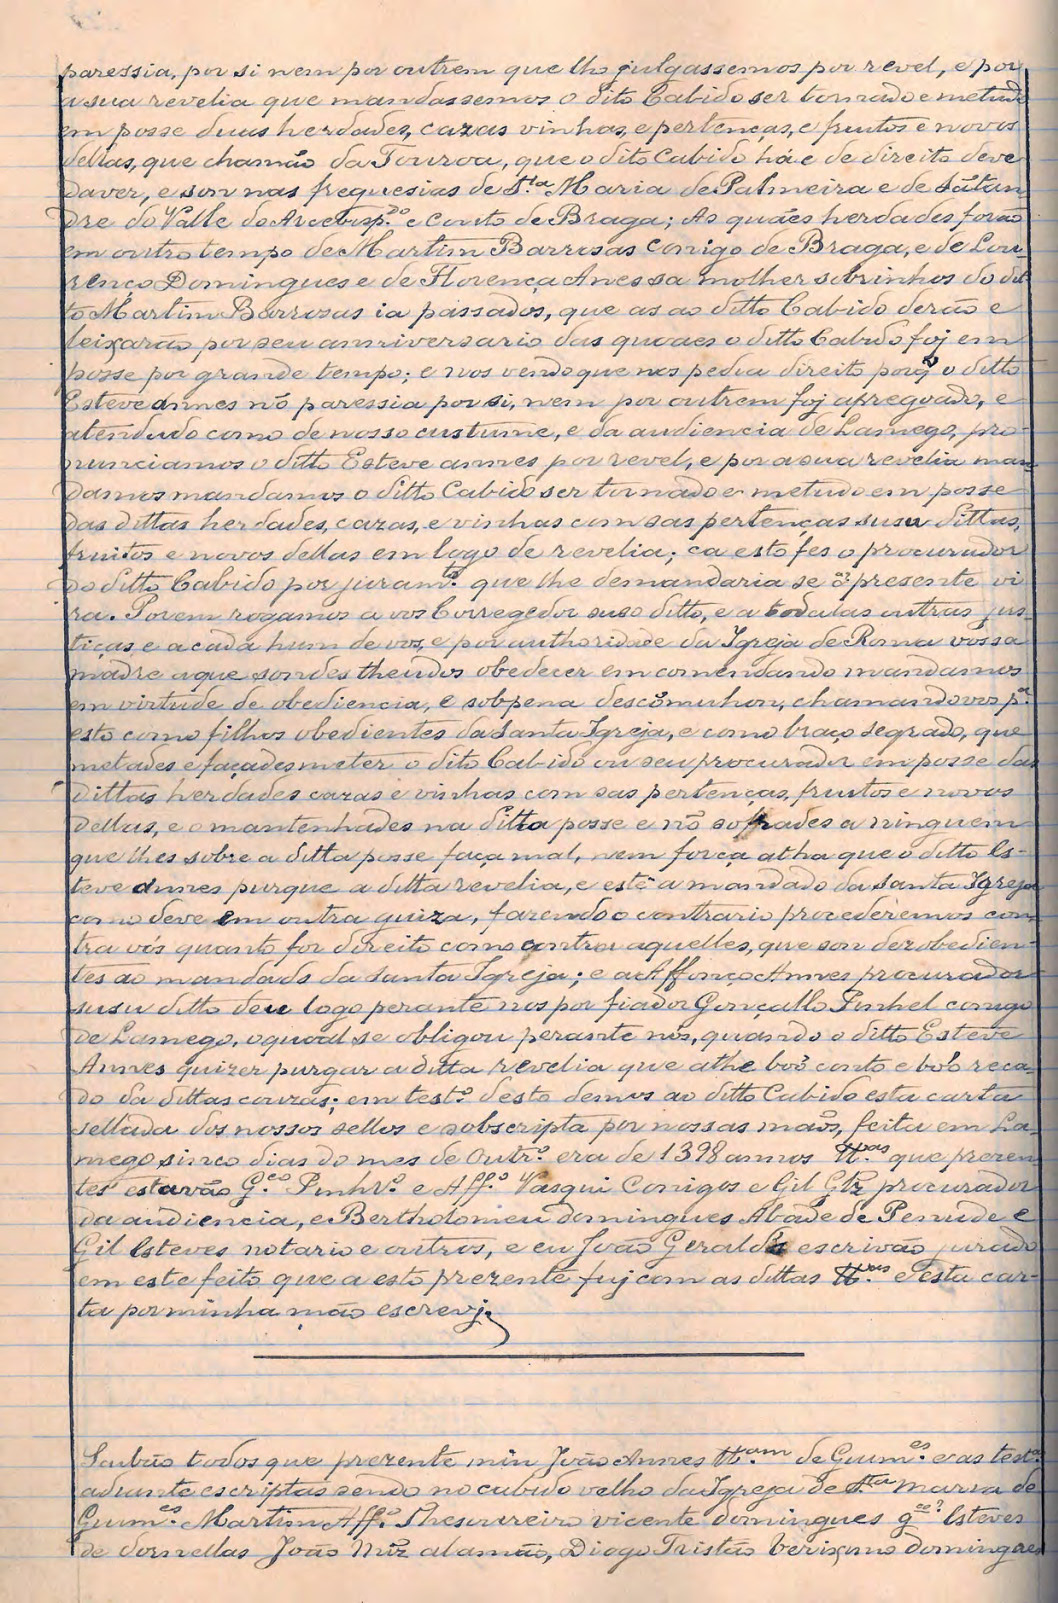 paressia, por si nem por outrem que lho julgassemos por revel, e por
a sua revelia que mandassemos o dito Cabido ser tornado e metudo
em posse duas herdades, cazas vinhas, e pertenças, e fruitos e novos
dellas, que chamão da Touroa, que o dito Cabido há e de direito deve
daver, e son nas freguesias de S.ta Maria de Palmeira e de Sãtan
dre do Valle do Arcebisp.do e Couto de Braga; As quáes herdades forão
em outro tempo de Martim Barrosas Conigo de Braga, e de Lou-
renço Domingues e de Florença Anes sa molher sobrinhos do dit
to Martim Barrosas ia passados, que as ao ditto Cabido derão e
leixarão por seu anniversario das quaaes o ditto Cabido foj em
posse por grande tempo; e nos vendo que nos pedia direito porq̃ o ditto
Esteve annes nõ paressia por si, nem por outrem foj apregoado, e
atendudo como de nosso custume, e da audiencia de Lamego, pro-
nunciamos o ditto Esteve annes por revel, e por a sua revelia man-
damos mandamos o ditto Cabido ser tornado e metudo em posse
das dittas herdades, cazas, e vinhas com sas pertenças suso dittas,
fruitos e novos dellas em logo de revelia; ca esto fes o procurador
do ditto Cabido por juram.to que lhe demandaria se õ presente vi
ra. Porem rogamos a vos Corregedor suso ditto, e a todalas outras jus-
tiças, e a cada hum de vos, e por authoridade da Igreja de Roma vossa
madre a que sondes theudos obedecer em comendando mandamos
em virtude de obediencia, e sobpena descõmunhon, chamandovos p.a
esto como filhos obedientes da Santa Igreja, e como braço segrado, que
metades e façades meter o dito Cabido ou seu procurador em posse das
dittas herdades cazas e vinhas com sas pertenças, fruitos e novos
dellas, e o mantenhades na ditta posse e nõ sofrades a ninguem
que lhes sobre a ditta posse faça mal, nem força atha que o ditto Es-
teve annes purque a ditta revelia, e estê a mandado da santa Igreja
como deve em outra guiza, fazendo o contrario procederemos con
tra vós quanto for direito como contra aquelles, que son desobedien-
tes ao mandado da santa Igreja; e a Affonço Annes procurador
susu ditto deu logo perante nos por fiador Gonçallo Pinhel conigo
de Lamego, o qual se obligou perante nos, quando o ditto Esteve
Annes quizer purgar a ditta revelia que a the boõ conto e boõ reca-
do da dittas couzas; em test.o desto demos ao ditto Cabido esta carta
sellada dos nossos sellos e sobscripta por nossas mãos, feita em La-
mego sinco dias do mes de Outr.o era de 1398 annos tt.as que prezen
tes estavão G.co Pinhr.o e Aff.o Vasqui Conigos e Gil Glz procurador
da audiencia, e Bertholomeu domingues Abade de Penude e
Gil Esteves notario e outros, e eu João Geraldes escrivão jurado
em este feito que a esto prezente fuj com as dittas tt.as e esta car-
ta por minha mão escrevj.
Saibão todos que prezente min João Annes tt.am de Guim.es e as test.as
adiante escriptas sendo no cabido velho da Igreja de S.ta maria de
Guim.es Martim Aff.o Thesoureiro vicente domingues g.ce? Esteves
de dornellas João Miz alamão, Diogo Tristão Verixmo domingues